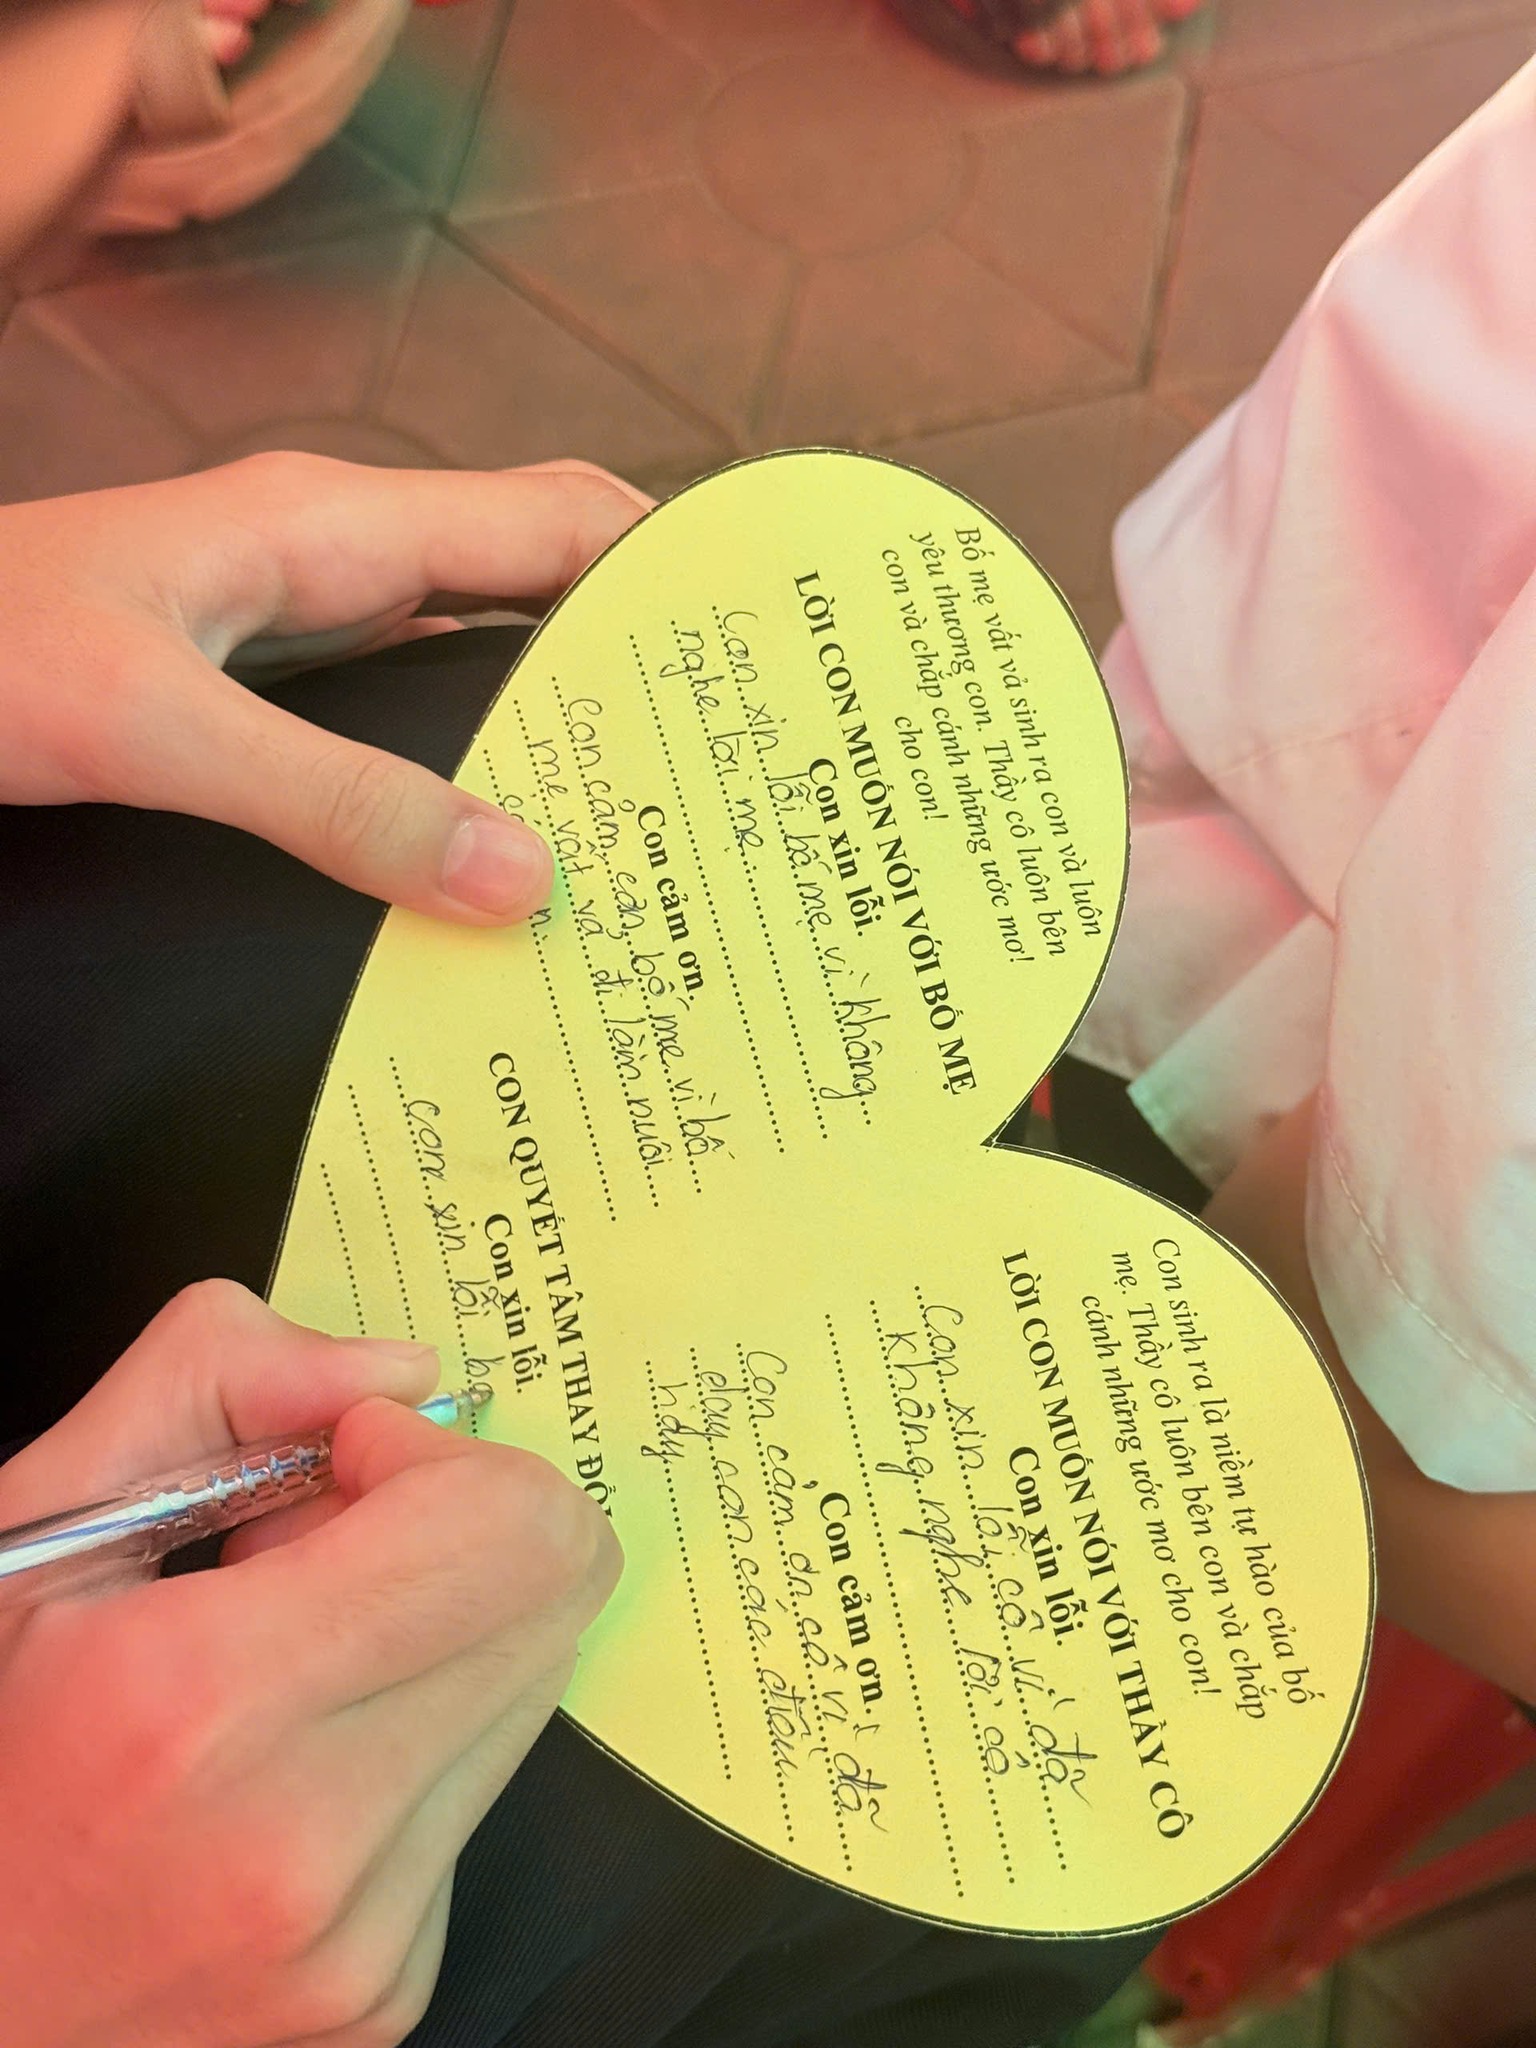 Bố mẹ vất vả sinh ra con và luôn
yêu thương con. Thầy cô luôn bên
con và chắp cánh những ước mơ!
cho con!
LỜI CON MUỐN NÓI VỚI BỐ MẸ
Con xin lỗi.
Con xin lỗi bố mẹ vì không
nghe lời mẹ
Con cảm ơn.
Con cảm ơn bố mẹ vì bố
mẹ vất vả đi làm nuôi
Con sinh ra là niềm tự hào của bố
mẹ. Thầy cô luôn bên con và chắp
cánh những ước mơ cho con!
LỜI CON MUỐN NÓI VỚI THẦY CÔ
Con xin lỗi.
Con xin lỗi cô vì đã
không nghe lời cô
Con cảm ơn.
Con cảm ơn cô vì đã
dạy con các điều
hay
CON QUYẾT TÂM THAY ĐỔI
Con xin lỗi.
Con xin lỗi